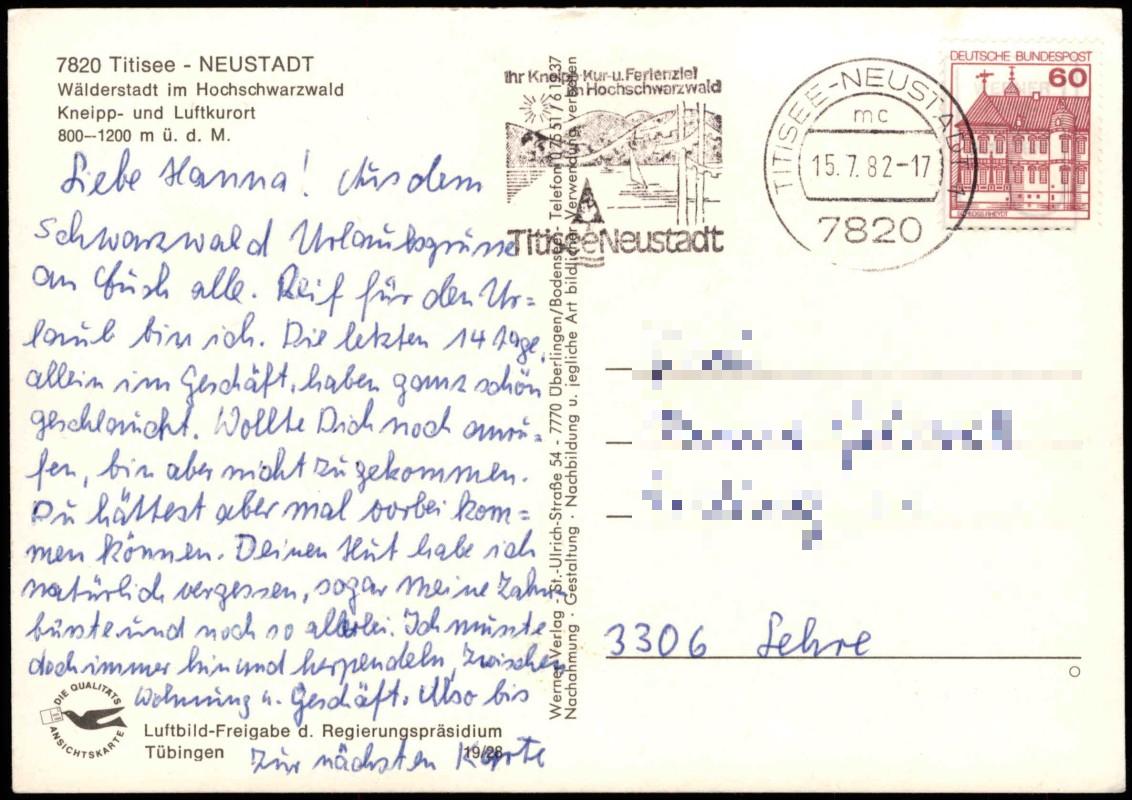 7820 Titisee - NEUSTADT
Wälderstadt im Hochschwarzwald
Kneipp- und Luftkurort
800–1200 m ü. d. M.
Liebe Hanna! Aus dem
Schwarzwald Urlaubsgrüsse
an Euch alle. Reif für den Ur=
laub bin ich. Die letzten 14 Tage,
allein im Geschäft, haben ganz schön
geschlaucht. Wollte Dich noch anru=
fen, bin aber nicht zu gekommen.
Du hättest aber mal vorbei kom=
men können. Deinen Hut habe ich
natürlich vergessen, sogar meine Zahn
bürste und noch so allerlei. Ich musste
doch immer hin und herpendeln, zwischen
Wohnung u. Geschäft. Also bis
zur nächsten Karte
DIE QUALITÄTS
ANSICHTSKARTE
Luftbild-Freigabe d. Regierungspräsidium
Tübingen 19/28
Werner Verlag · St.-Ulrich-Straße 54 - 7770 Überlingen/Bodensee · Telefon 07551/61937
Nachahmung · Gestaltung · Nachbildung u. jegliche Art bildlicher Verwendung verboten
Ihr Kneipp-Kur-u.Ferienziel
im Hochschwarzwald
Titisee-Neustadt
TITISEE-NEUSTADT 1
mc
15.7.82-17
7820
DEUTSCHE BUNDESPOST
60
3306 Lehre